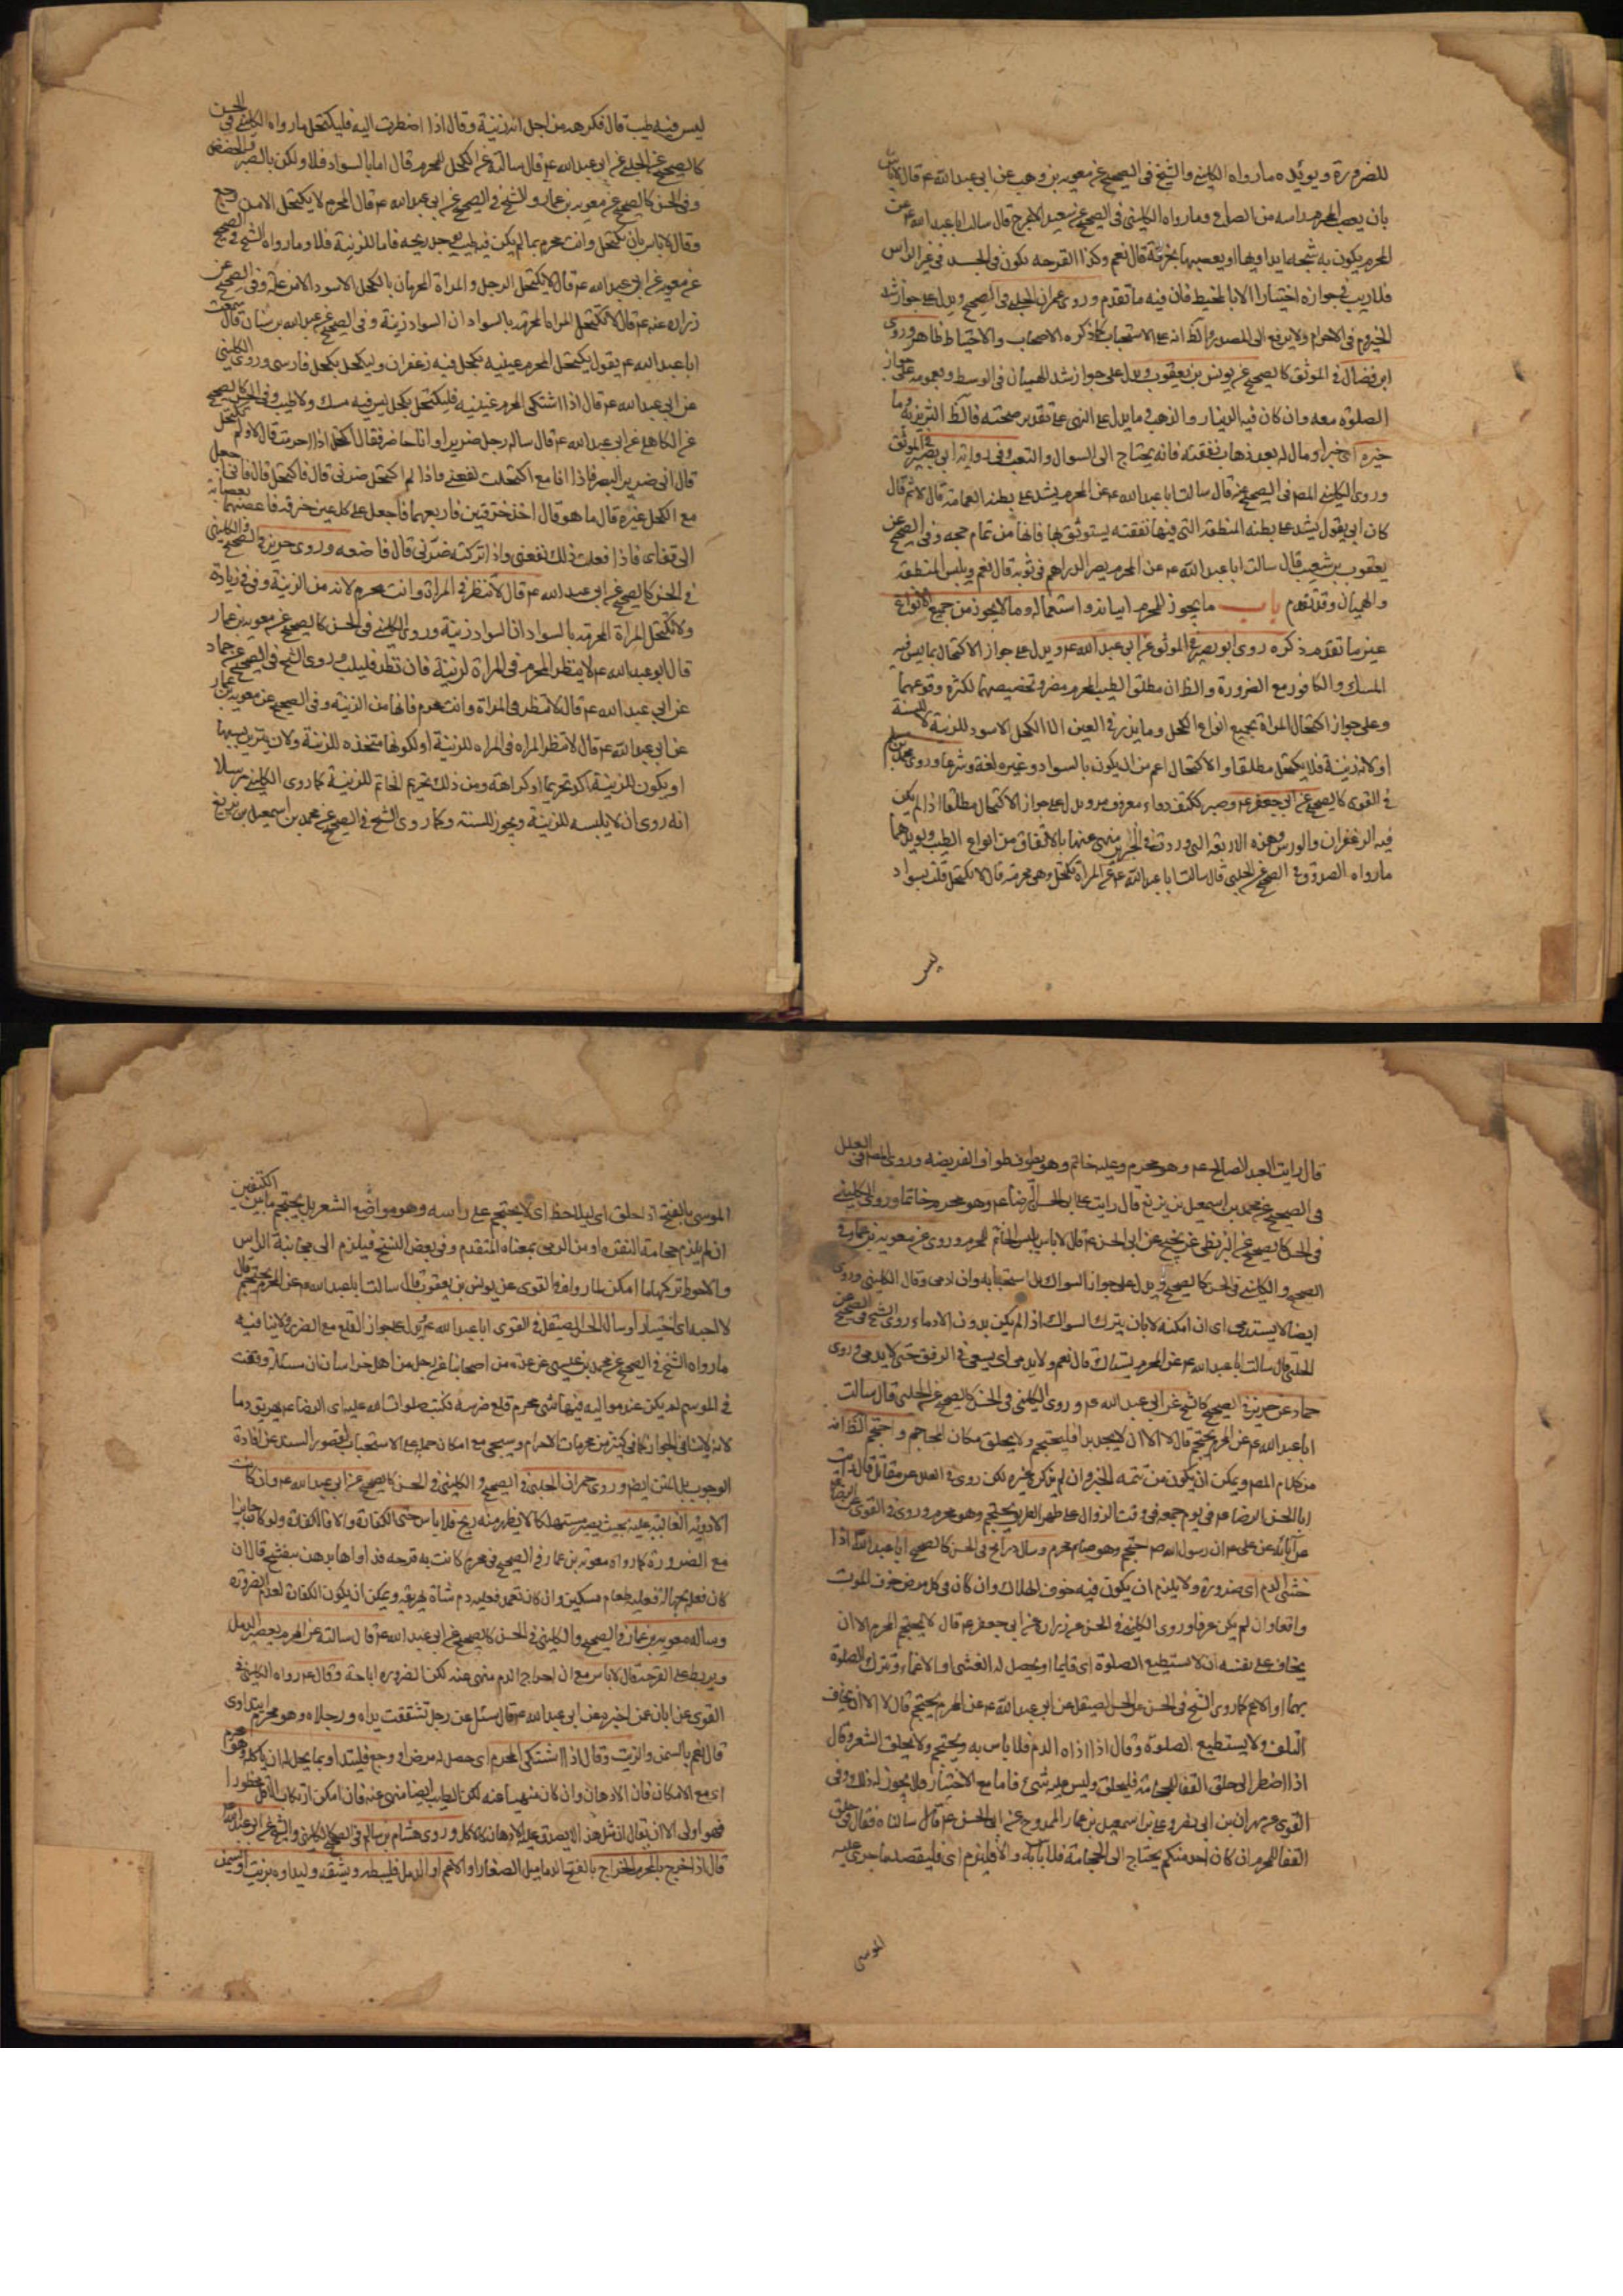 للضرورة ويؤيده مارواه الكليني والشيخ في الصحيح عن معوية بن وهب عن ابي عبد الله ع قال لاباس
بان يعصب المحرم راسه من الصداع ومارواه الكليني في الصحيح عن سعيد الاعرج قال سالت ابا عبد الله ع عن
المحرم يكون به شجه ايداويها او يعصبها بخرقة قال نعم وكذا القرحه يكون في الجسد في غير الراس
فلاريب في جوازه اختيارا الا بالمخيط فان فيه ماتقدم وروى عمران الحلبي في الصحيح ويدل على جواز شد
ابن فضال في الموثق كالصحيح عن يونس بن يعقوب ويدل على جواز شد الهميان في الوسط وبعمومه على جواز
الصلوة معه وان كان فيه الدينار والذهب
وروى الكليني المص في الصحيح عنه قال سالت ابا عبد الله ع عن المحرم يشد على بطنه العمامة قال لا ثم قال
كان ابي يقول يشد على بطنه المنطقة التي فيها نفقته يستوثق بها فانها من تمام حجه وفي الصحيح عن
يعقوب بن شعيب قال سالت ابا عبد الله ع عن المحرم يصر الدراهم في ثوبه قال نعم ويلبس المنطقة
والهميان وقد تقدم باب مايجوز للمحرم اتيانه واستعماله ومالايجوز من جميع الانواع
غير ماتقدم ذكره روى ابو بصير في الموثق عن ابي عبد الله ع ويدل على جواز الاكتحال بماليس فيه
المسك والكافور مع الضرورة والظ ان مطلق الطيب للمحرم مضر وتخصيصهما لكثرة وقوعهما
وعلى جواز اكتحال المراة بجميع انواع الكحل ومايذر في العين الا الكحل الاسود للزينة
او لانه زينة فلايكتحل مطلقا والاكتحال اعم من ان يكون بالسواد وغيره لغة وشرعا وروى
في القوى كالصحيح عن ابي جعفر ع وصبر ككتف دواء معروف مر ويدل على جواز الاكتحال مطلقا اذا لم يكن
فيه الزعفران والورس وهذه الاربعة التي وردت في الخبرين منهى عنها بالاتفاق من انواع الطيب ويؤيدهما
مارواه الصدوق في الصحيح عن الحلبي قال سالت ابا عبد الله ع عن المراة تكتحل وهي محرمة قال لا تكتحل قلت بسواد
ليس
ليس فيه طيب قال فكرهه من اجل انه زينة وقال اذا اضطرت اليه فلتكتحل مارواه الكليني في الحسن
كالصحيح عن الحلبي عن ابي عبد الله ع قال سالته عن الكحل للمحرم قال اما بالسواد فلا ولكن بالصبر والحضض
وفي الحسن كالصحيح عن معوية بن عمار والشيخ في الصحيح عن ابي عبد الله ع قال المحرم لايكتحل الا من وجع
وقال لاباس بان تكتحل وانت محرم بمالم يكن فيه طيب يوجد ريحه فاما للزينة فلا ومارواه الشيخ في الصحيح
عن معوية عن ابي عبد الله ع قال لايكتحل الرجل والمراة المحرمان بالكحل الاسود الا من علة وفي الصحيح عن
زراره عنه ع قال لاتكتحل المراة المحرمه بالسواد ان السواد زينة وفي الصحيح عن عبد الله بن سنان قال سمعت
ابا عبد الله ع يقول يكتحل المحرم عينيه بكحل فيه زعفران وليكحل بكحل فارسى وروى الكليني
عن ابي عبد الله ع قال اذا اشتكى المحرم عينيه فليكتحل بكحل ليس فيه مسك ولاطيب وفي الحسن كالصحيح
عن الكاهلى عن ابي عبد الله ع قال ساله رجل ضرير وانا حاضر فقال اكتحل اذا احرمت قال لا ولم تكتحل
قال اني ضرير البصر فاذا انا اكتحلت نفعني واذا لم اكتحل ضرني قال فاكتحل قال فاني اجعل
مع الكحل غيره قال ماهو قال اخذ خرقتين فاربعهما فاجعل على كل عين خرقة فاعصبهما بعصابة
الى قفاى فاذا فعلت ذلك نفعني واذا تركته ضرني قال فاصنعه وروى حريز في الصحيح والكليني
في الحسن كالصحيح عن ابي عبد الله ع قال لاتنظر في المراة وانت محرم لانه من الزينة وفي في زيادة
ولاتكتحل المراة المحرمة بالسواد ان السواد زينة وروى الكليني في الحسن كالصحيح عن معوية بن عمار
قال ابو عبد الله ع لاينظر المحرم في المراة لزينة فان نظر فليلب وروى الشيخ في الصحيح عن حماد
عن ابي عبد الله ع قال لاتنظر في المراة وانت محرم فانها من الزينة وفي الصحيح عن معوية بن عمار
عن ابي عبد الله ع قال لاتنظر المراه في المراه للزينة
او يكون للزينة اكد تحريما او كراهة ومن ذلك تحريم الخاتم للزينة كما روى الكليني مرسلا
انه روى ان لايلبسه للزينة ويجوز للسنة وكما روى الشيخ في الصحيح عن محمد بن اسمعيل بن بزيع
قال رايت العبد الصالح ع وهو محرم وعليه خاتم وهو يطوف طواف الفريضه وروى المص في العلل
في الصحيح عن محمد بن اسمعيل بن بزيع قال رايت على ابي الحسن الرضا ع وهو محرم خاتما وروى الكليني
في الحسن كالصحيح عن البزنطي عن نجيح عن ابي الحسن ع قال لاباس بلبس الخاتم للمحرم وروى عن معوية بن عمار في
الصحيح والكليني في الحسن كالصحيح ويدل على جواز السواك بل استحبابه وان ادمى وقال الكليني وروى
ايضا لايستدمى اى ان امكنه لا بان يترك السواك اذا لم يكن بدون الادماء وروى الشيخ في الصحيح عن
الحلبي قال سالت ابا عبد الله ع عن المحرم يستاك قال نعم ولايدمى اى يسعى في الرفق حتى لايدمى وروى
حماد عن حريز في الصحيح كالشيخ عن ابي عبد الله ع وروى الكليني في الحسن كالصحيح عن الحلبي قال سالت
ابا عبد الله ع عن المحرم يحتجم قال لا الا ان لايجد بدا فليحتجم ولايحلق مكان المحاجم واحتجم الظ انه
من كلام المص ويمكن ان يكون من تتمة الخبر وان لم يذكره غيره لكن روى في العلل عن مقاتل قال رايت
ابا الحسن الرضا ع في يوم جمعه في وقت الزوال على ظهر الطريق يحتجم وهو محرم وروى في القوى عن الرضا
عن آبائه عن علي ع ان رسول الله ص احتجم وهو صائم محرم وسال ذريح في الحسن كالصحيح ابا عبد الله ع اذا
خشي الدم اى ضرورة ولايلزم ان يكون فيه خوف الهلاك وان كان في كل مرض خوف الموت
واقعا وان لم يكن عرفا وروى الكليني في الحسن عن زرارة عن ابي جعفر ع قال لايحتجم المحرم الا ان
يخاف على نفسه ان لايستطيع الصلوة اى قايما او يحصل له الغشى او الاغماء وتترك الصلوة
بهما او الاعم كما روى الشيخ في الحسن عن الحسن الصيقل عن ابي عبد الله ع عن المحرم يحتجم قال لا الا ان يخاف
التلف ولايستطيع الصلوة وقال اذا اذاه الدم فلاباس به ويحتجم ولايحلق الشعر وقال
اذا اضطر الى حلق القفا للحجامة فليحلق وليس عليه شيء فاما مع الاختيار فلايجوز له ذلك وفي
القوى عن مهران بن ابي نصر وعلي بن اسمعيل بن عمار الممدوح عن ابي الحسن ع قال سالناه فقال في حلق
القفا للمحرم ان كان احد منكم يحتاج الى الحجامة فلاباس به والا فيلزم اى فليقصد ماجرى عليه
الموسى
الموسى بالفتح اذا حلق
ان لم يلزم حجامة النقره او من الرمى بمعناه المتقدم وفي بعض النسخ فيلزم الى مجانبة الراس
والاحوط تركهما ما امكن لما رواه في القوى عن يونس بن يعقوب قال سالت ابا عبد الله ع عن المحرم يحتجم قال
لا احبه اى اختيارا وساله الحسن الصيقل في القوى ابا عبد الله ع ويدل على جواز القلع مع الضرر ولاينافيه
مارواه الشيخ في الصحيح عن محمد بن عيسى عن عدة من اصحابنا عن رجل من اهل خراسان ان مسئلة وقعت
في الموسم لم يكن عند مواليه فيها شيء محرم قلع ضرسه فكتب صلوات الله عليه اى الرضا ع يهريق دما
لانه لاينافى الجواز كما في كثير من محرمات الاحرام وسيجي مع امكان حمله على الاستحباب لقصور السند عن افادة
الوجوب بل المتن ايضا وروى عمران الحلبي في الصحيح والكليني في الحسن كالصحيح عن ابي عبد الله ع وان كانت
الادوية الغالبة عليه بحيث يصير مستهلكا لايظهر منه ريح فلاباس حتى الكفارة والا فالكفارة ولو كان جايزا
مع الضرورة كما رواه معوية بن عمار في الصحيح في محرم كانت به قرحه فداواها بدهن بنفسج قال ان
كان فعله بجهالة فعليه طعام مسكين وان كان تعمد فعليه دم شاة يهريقه ويمكن ان يكون الكفارة لعدم الضرورة
وساله معوية بن عمار في الصحيح والكليني في الحسن كالصحيح عن ابي عبد الله ع قال سالته عن المحرم يعصر الدمل
ويربط على القرحة قال لاباس مع ان اخراج الدم منهى عنه لكن الضروره اباحة وقال ع رواه الكليني في
القوى عن ابان عمن اخبره عن ابي عبد الله ع قال سئل عن رجل تشققت يداه ورجلاه وهو محرم ايتداوى
قال نعم بالسمن والزيت وقال اذا اشتكى المحرم اى حصل له مرض او وجع فليتداو بمايحل له ان ياكله وهو محرم
اى مع الامكان فان الادهان وان كان منهيا عنه لكن الطيب ايضا منهى عنه فان امكن ارتكاب الاقل محظورا
فهو اولى الا ان يقال ان مثل هذا لايصدق عليه الادهان كالاكل وروى هشام بن سالم في الصحيح كالكليني والشيخ عن ابي عبد الله ع
قال اذا خرج بالمحرم الخراج بالضم الدماميل الصغار او الاعم او الدمل فليبطه ويشقه وليداوه بزيت او سمن